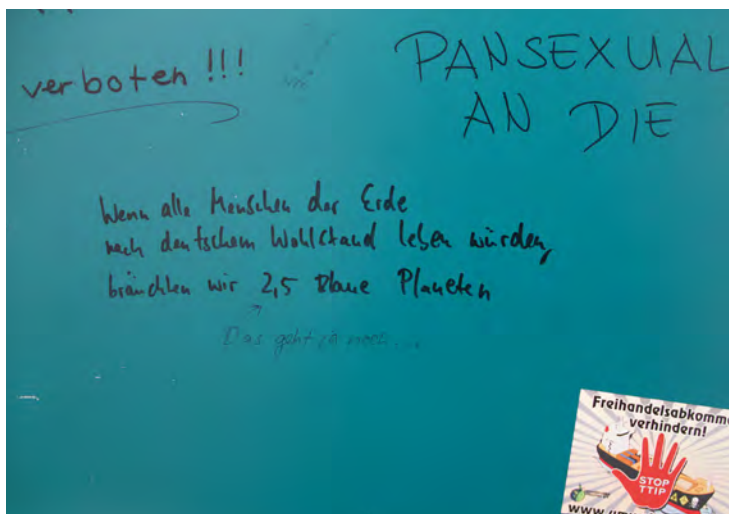 verboten!!!
PANSEXUAL
AN DIE
Wenn alle Menschen der Erde
nach deutschem Wohlstand leben würden,
bräuchten wir 2,5 Blaue Planeten
Das geht ja noch...
Freihandelsabkomme
verhindern!
STOP
TTIP